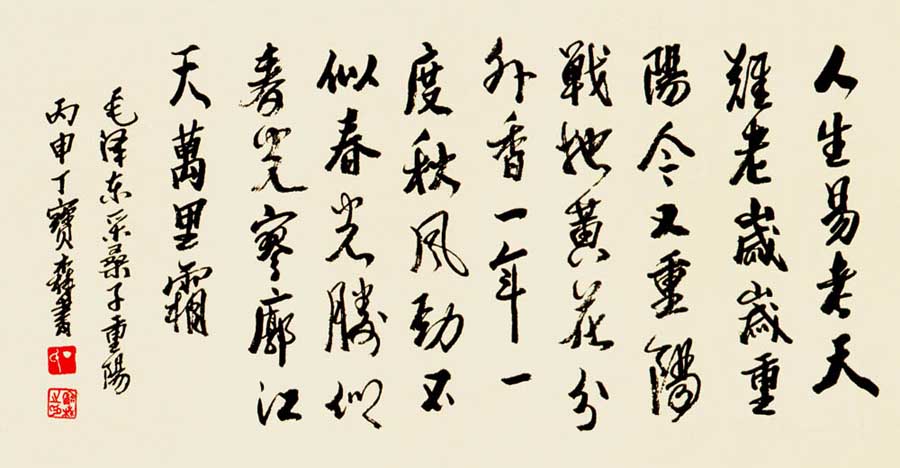 人生易老天
難老歲歲重
陽今又重陽
戰地黃花分
外香一年一
度秋风勁不
似春光勝似
春光寥廓江
天萬里霜
毛泽东采桑子重陽
丙申丁寶森書